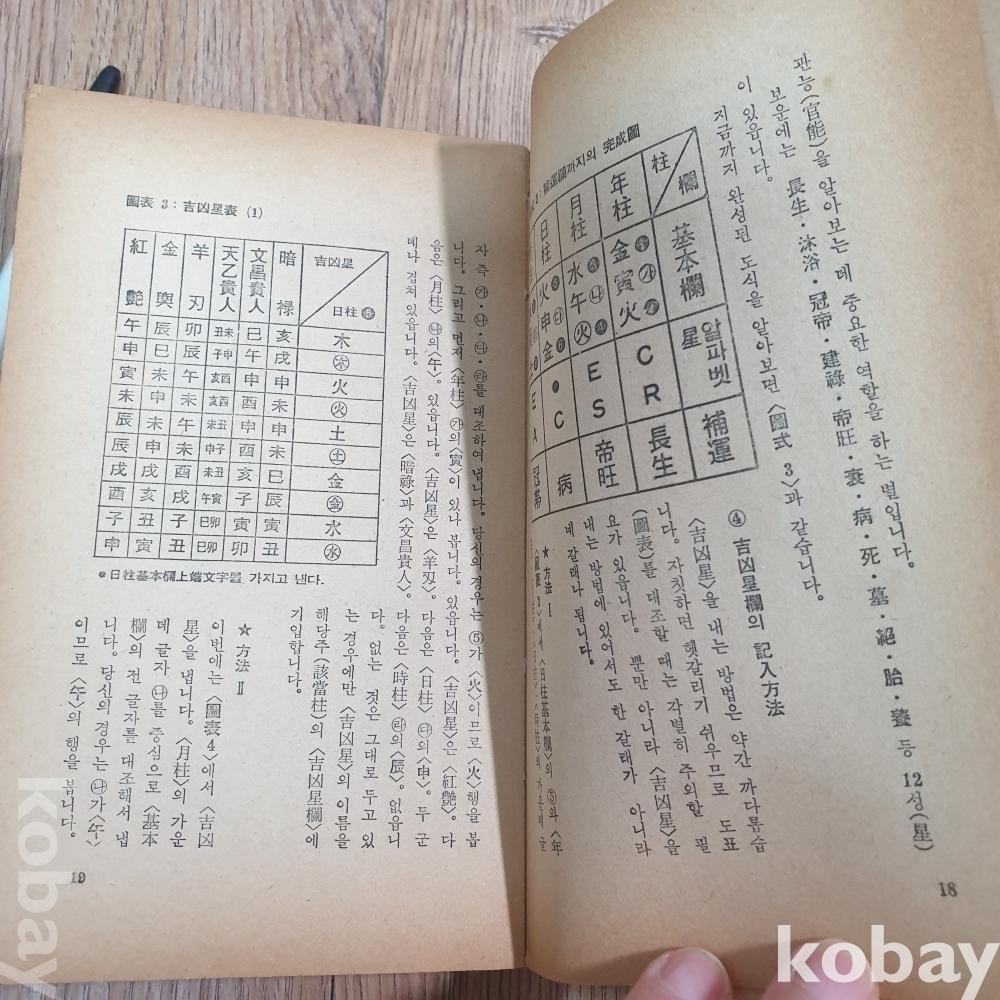 관능(官能)을 알아보는 데 중요한 역할을 하는 별입니다.
보운에는 長生・沐浴・冠帝・建祿・帝旺・衰・病・死・墓・絕・胎・養 등 12성(星)
이 있읍니다.
지금까지 완성된 도식을 알아보면 〈圖式 3〉과 같습니다.
3: 補運欄까지의 完成圖
柱 欄 基本欄 알파벳星 補運
年柱 金 ㉮ 寅火 C R 長生
月柱 水 ㉯ 午火 E S 帝旺
日柱 火 ㉰ 申金 ● C 病
E A 冠帶
④ 吉凶星欄의 記入方法
〈吉凶星〉을 내는 방법은 약간 까다롭습
니다. 자칫하면 헷갈리기 쉬우므로 도표
(圖表)를 대조할 때는 각별히 주의할 필
요가 있읍니다. 뿐만 아니라 〈吉凶星〉을
내는 방법에 있어서도 한 갈래가 아니라
네 갈래나 됩니다.
★ 方法 Ⅰ
〈圖表 3〉에서 〈日柱基本欄〉의 ⑤와 〈年
18
자 즉 ㉮・㉯・㉰・㉱를 대조하여 냅니다. 당신의 경우는 ⑤가 〈火〉이므로 〈火〉행을 봅
니다. 그리고 먼저 〈年柱〉 ㉮의 〈寅〉이 있나 봅니다. 있읍니다. 〈吉凶星〉은 〈紅艶〉. 다
음은 〈月柱〉 ㉯의 〈午〉. 있읍니다. 〈吉凶星〉은 〈羊刃〉.
다음은 〈日柱〉 ㉰의 〈申〉. 두 군
데나 겹쳐 있읍니다. 〈吉凶星〉은 〈暗祿〉과 〈文昌貴人〉.
다음은 〈時柱〉 ㉱의 〈辰〉. 없읍니
다. 없는 것은 그대로 두고 있
는 경우에만 〈吉凶星〉의 이름을
해당주(該當柱)의 〈吉凶星欄〉에
기입합니다.
圖表 3: 吉凶星表 (1)
紅艶 金輿 羊刃 天乙貴人 文昌貴人 暗祿 吉凶星 日柱
午 辰 卯 丑未 巳 亥 木
申 巳 辰 子申 午 戌 ㊍
寅 未 午 亥酉 申 申 火
未 申 未 亥酉 酉 未 ㊋
辰 未 午 未丑 申 申 土
辰 申 未 申子 酉 未 ㊏
戌 戌 酉 未丑 亥 巳 金
酉 亥 戌 午寅 子 辰 ㊎
子 丑 子 巳卯 寅 寅 水
申 寅 丑 巳卯 卯 丑 ㊌
●日柱基本欄上端文字를 가지고 낸다.
★ 方法 Ⅱ
이번에는 〈圖表 4〉에서 〈吉凶
星〉을 냅니다. 〈月柱〉의 가운
데 글자 ㉯를 중심으로 〈基本
欄〉의 전 글자를 대조해서 냅
니다. 당신의 경우는 ㉯가 〈午〉
이므로 〈午〉의 행을 봅니다.
19
kobay
kobay